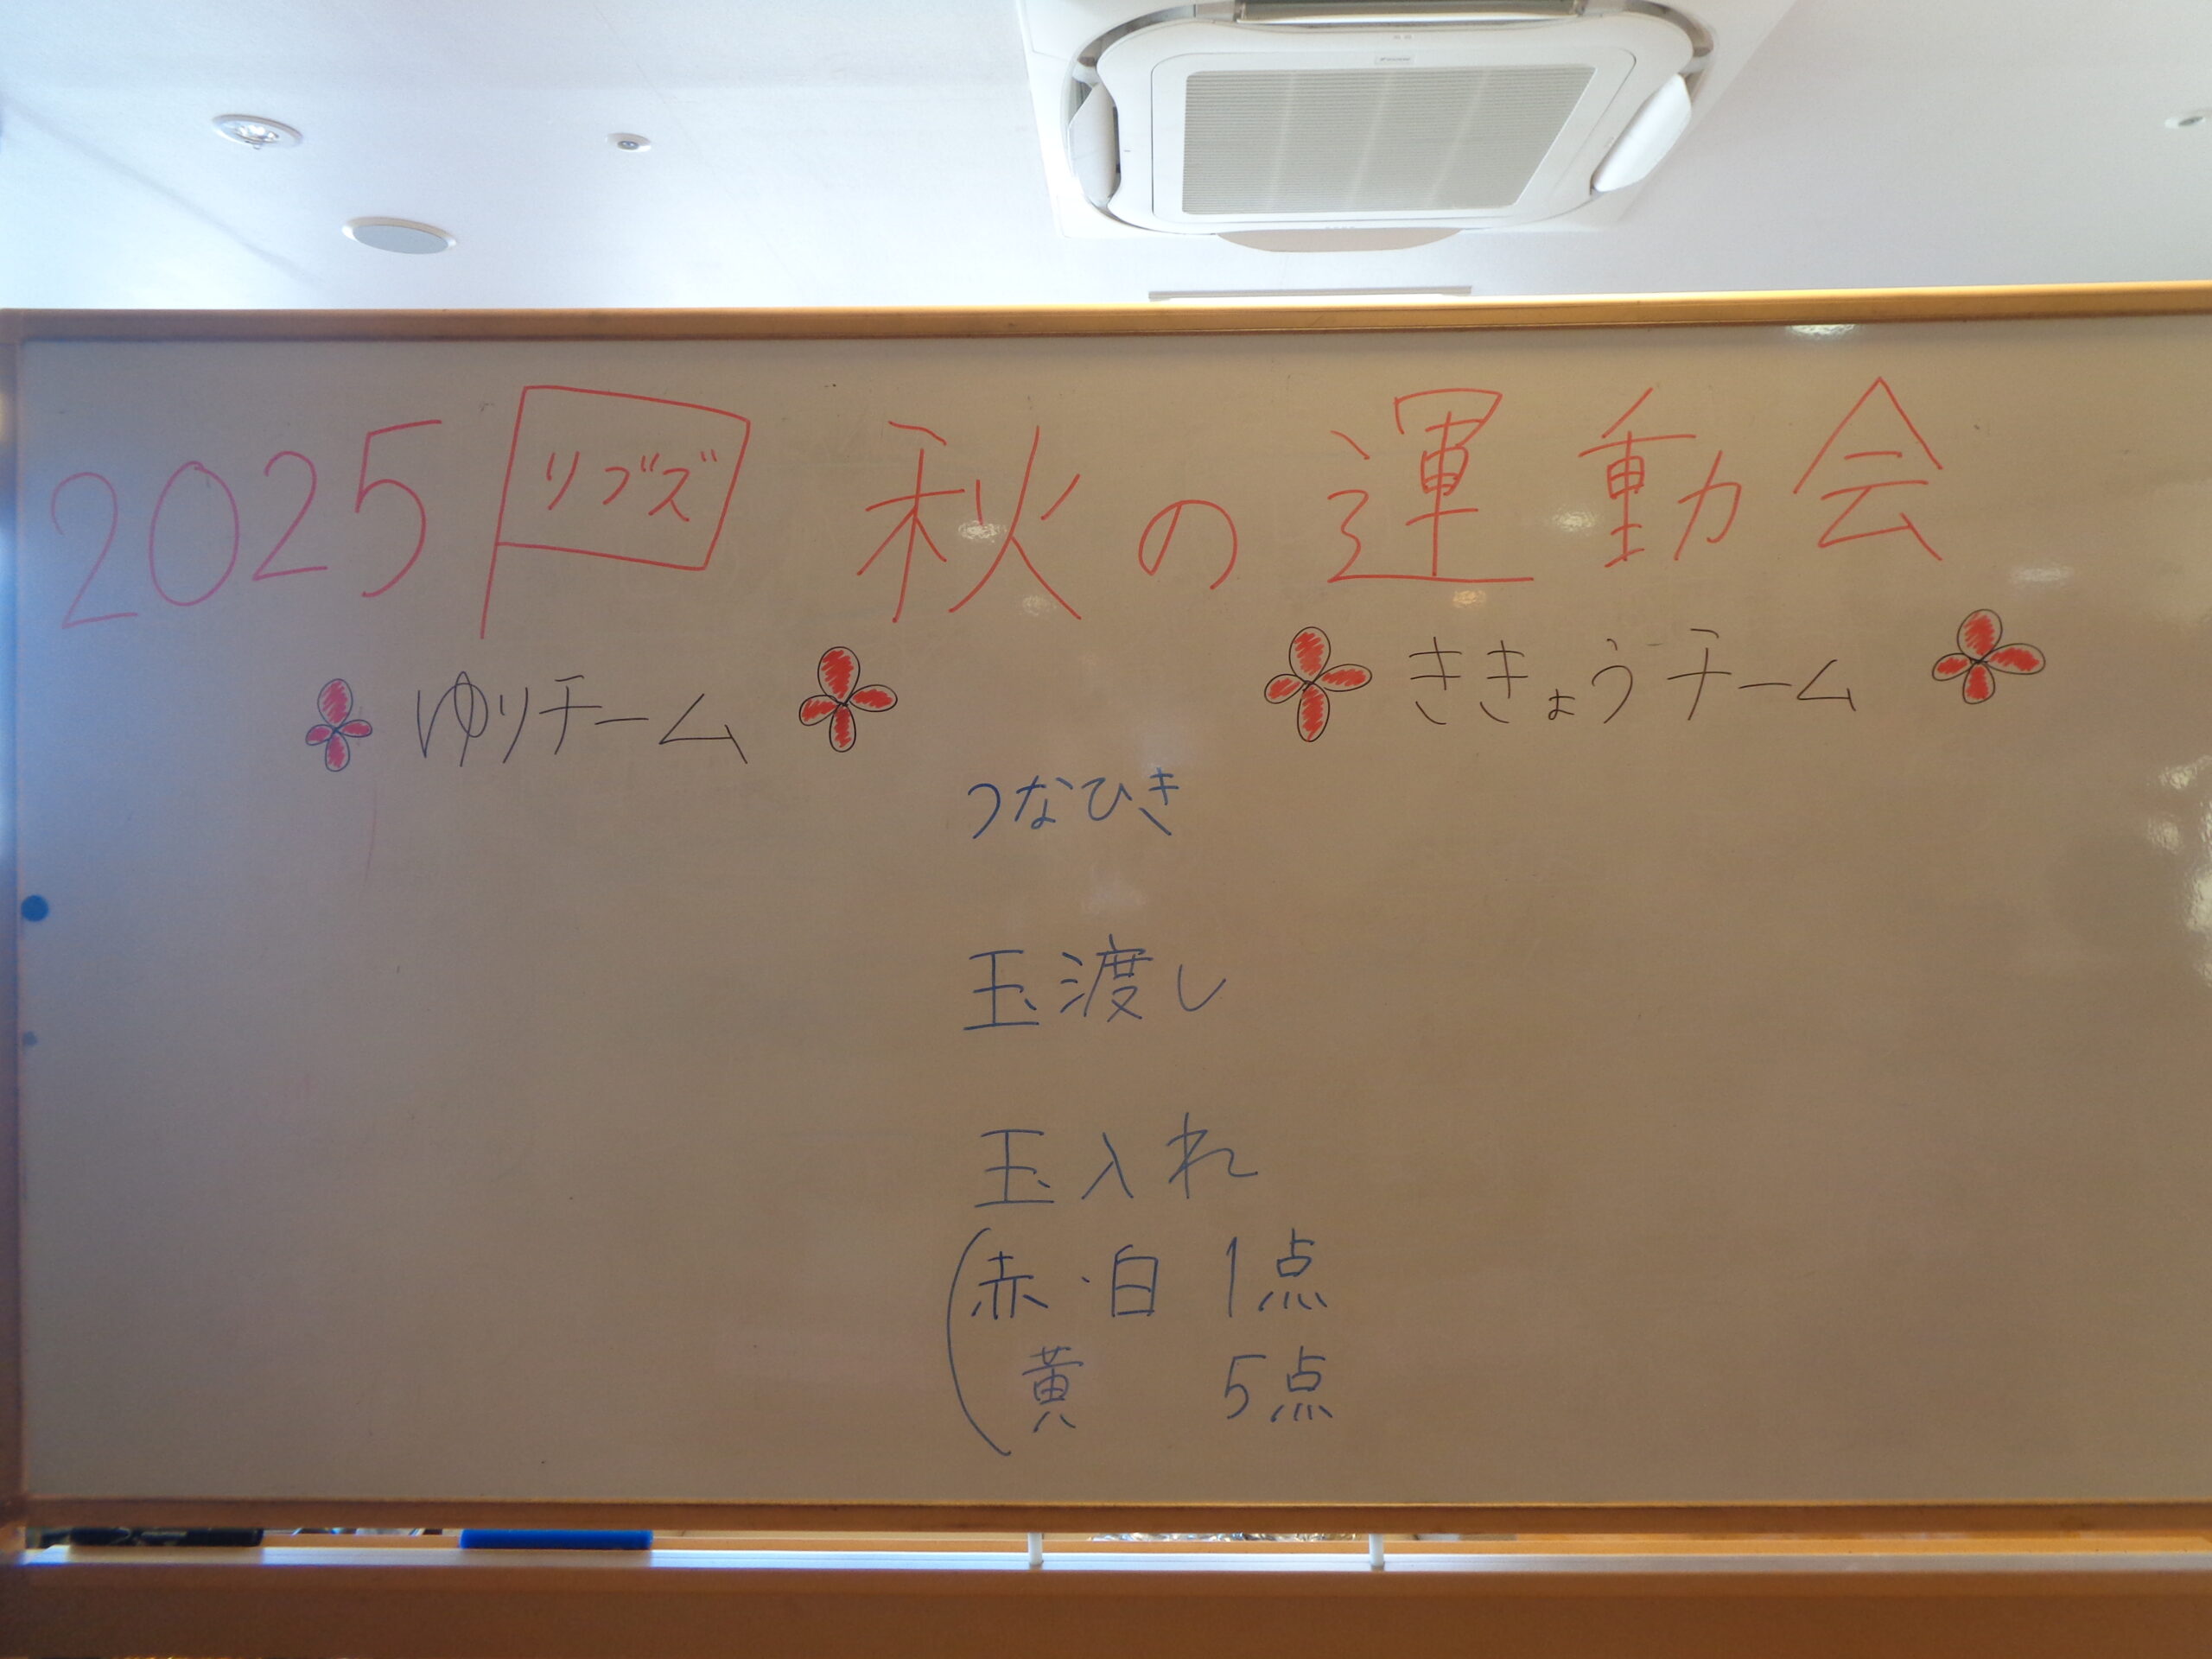 2025 リブズ 秋の運動会
ゆりチーム ききょうチーム
つなひき
玉渡し
玉入れ
(赤・白 1点
黄 5点